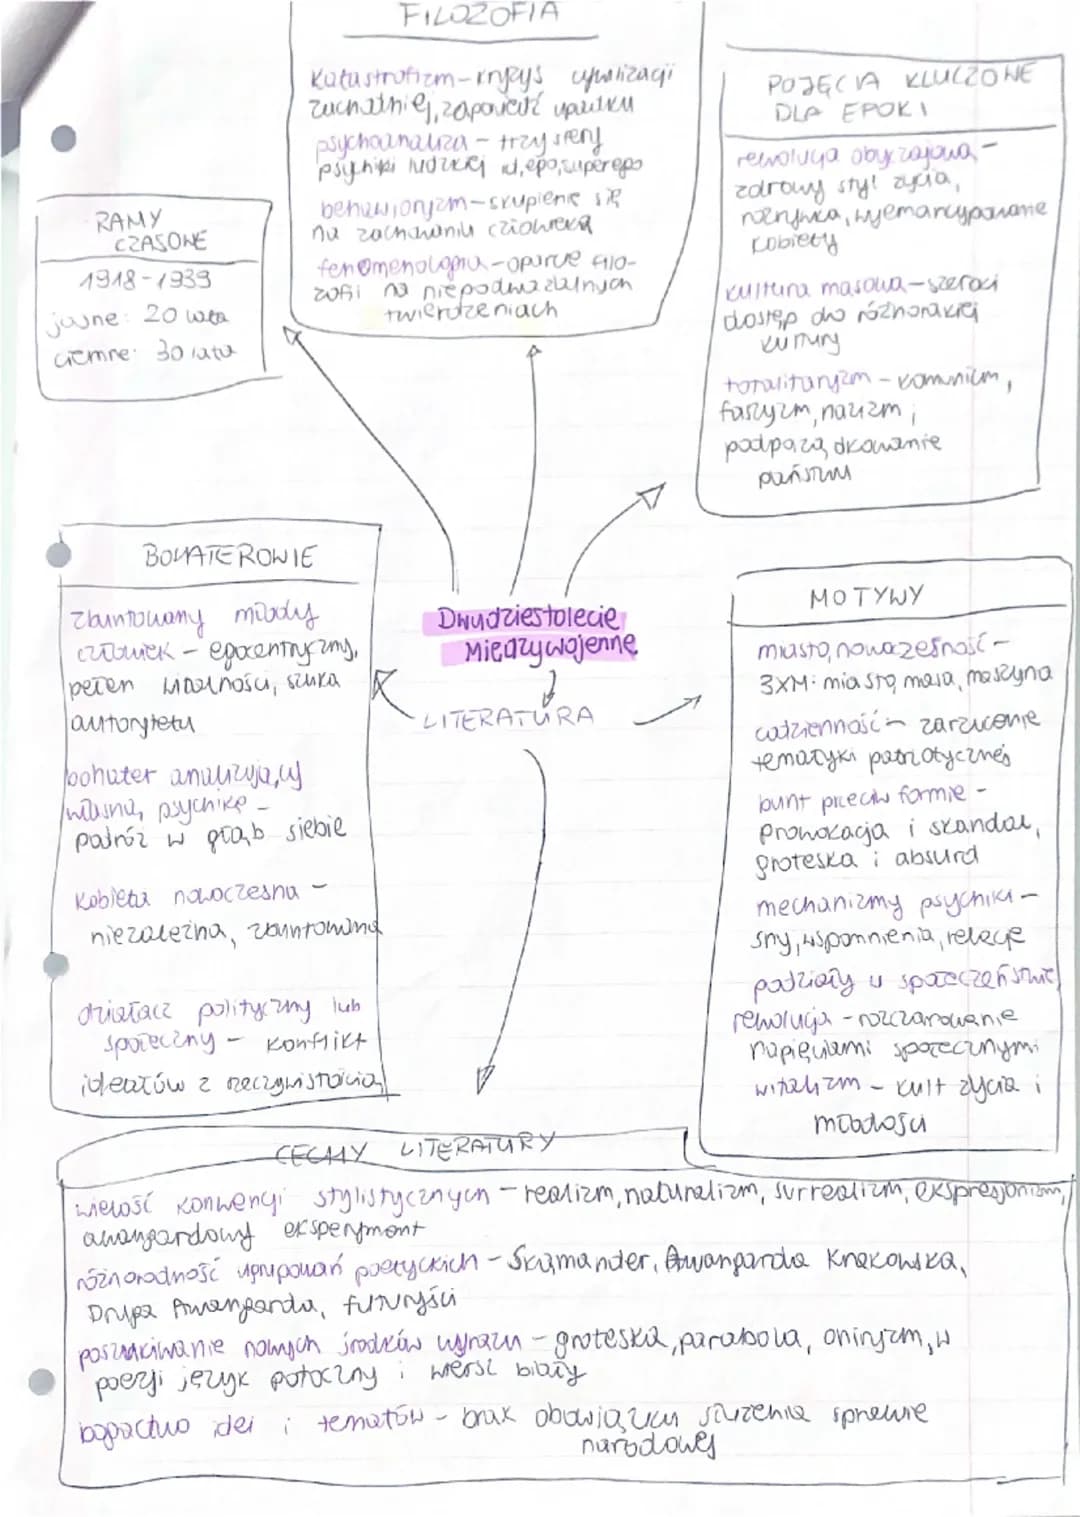 FILOZOFIA
katastrofizm - kryzys cywilizacji
zachodniej, zapowiedź upadku
psychoanaliza - trzy sfery
psychiki ludzkiej id, ego, superego
behawioryzm - skupienie się
na zachowaniu człowieka
fenomenologia - oparcie filo-
zofii na niepodważalnych
twierdzeniach
POJĘCIA KLUCZOWE
DLA EPOKI
rewolucja obyczajowa -
zdrowy styl życia,
rozrywka, wyemancypowane
kobiety
kultura masowa - szeroki
dostęp do różnorakiej
kultury
totalitaryzm - komunizm,
faszyzm, nazizm,
podporządkowanie
państwu
RAMY
CZASOWE
1918-1939
jasne: 20 lata
ciemne: 30 lata
BOHATEROWIE
zbuntowany młody
człowiek - egocentryczny,
pełen witalności, szuka
autorytetu
bohater analizujący
własną psychikę -
podróż w głąb siebie
kobieta nowoczesna -
niezależna, zbuntowana
działacz polityczny lub
społeczny - konflikt
ideałów z rzeczywistością
Dwudziestolecie
Międzywojenne
LITERATURA
MOTYWY
miasto, nowoczesność -
3XM: miasto, masa, maszyna
codzienność - zarzucenie
tematyki patriotycznej
bunt przeciw formie -
prowokacja i skandal,
groteska i absurd
mechanizmy psychiki -
sny, wspomnienia, relacje
podziały w społeczeństwie
rewolucja - rozczarowanie
napięciami społecznymi
witalizm - kult życia i
młodości
CECHY LITERATURY
wielość konwencji stylistycznych - realizm, naturalizm, surrealizm, ekspresjonizm,
awangardowy eksperyment
różnorodność ugrupowań poetyckich - Skamander, Awangarda Krakowska,
Druga Awangarda, futuryści
poszukiwanie nowych środków wyrazu - groteska, parabola, oniryzm, w
poezji język potoczny i wiersz biały
bogactwo idei i tematów - brak obowiązku służenia sprawie
narodowej